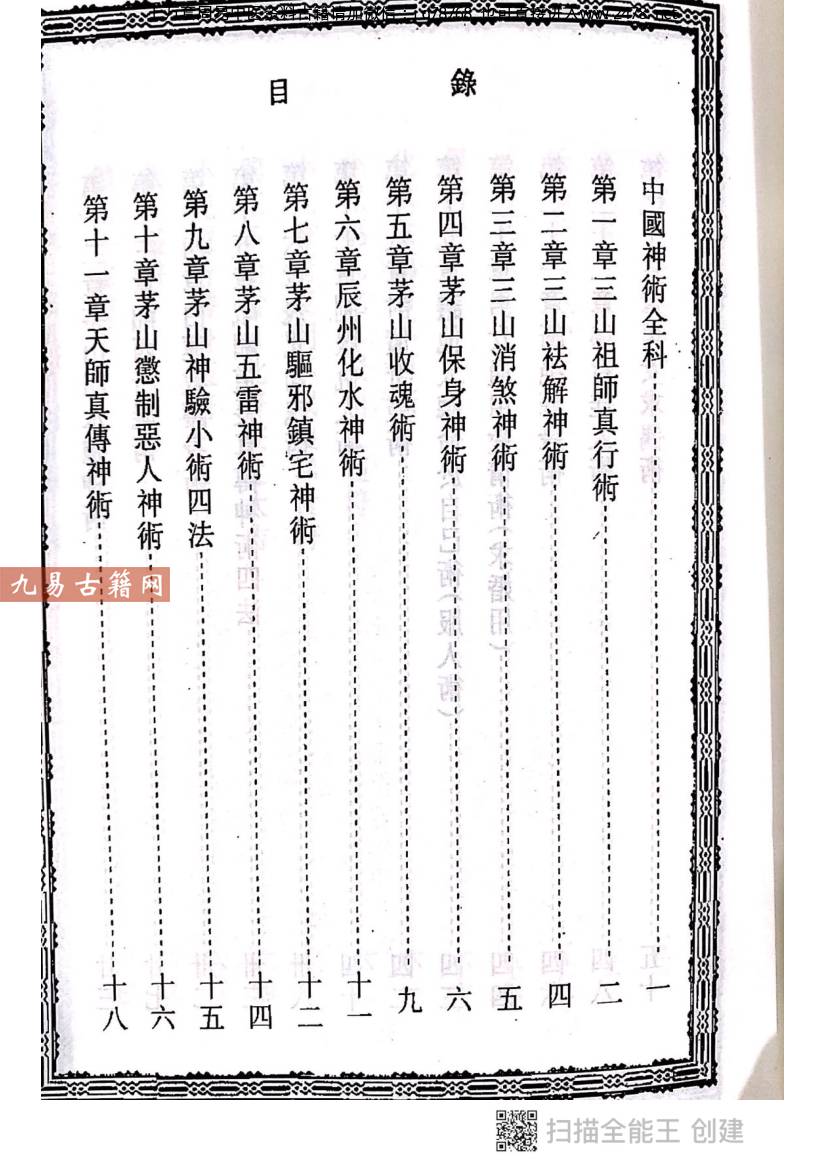 目錄
中國神術全科一
第一章三山祖師真行術二
第二章三山祛解神術四
第三章三山消煞神術五
第四章茅山保身神術六
第五章茅山收魂術九
第六章辰州化水神術十一
第七章茅山驅邪鎮宅神術十二
第八章茅山五雷神術十四
第九章茅山神驗小術四法十五
第十章茅山懲制惡人神術十六
第十一章天師真傳神術十八
九易古籍网
扫描全能王 创建